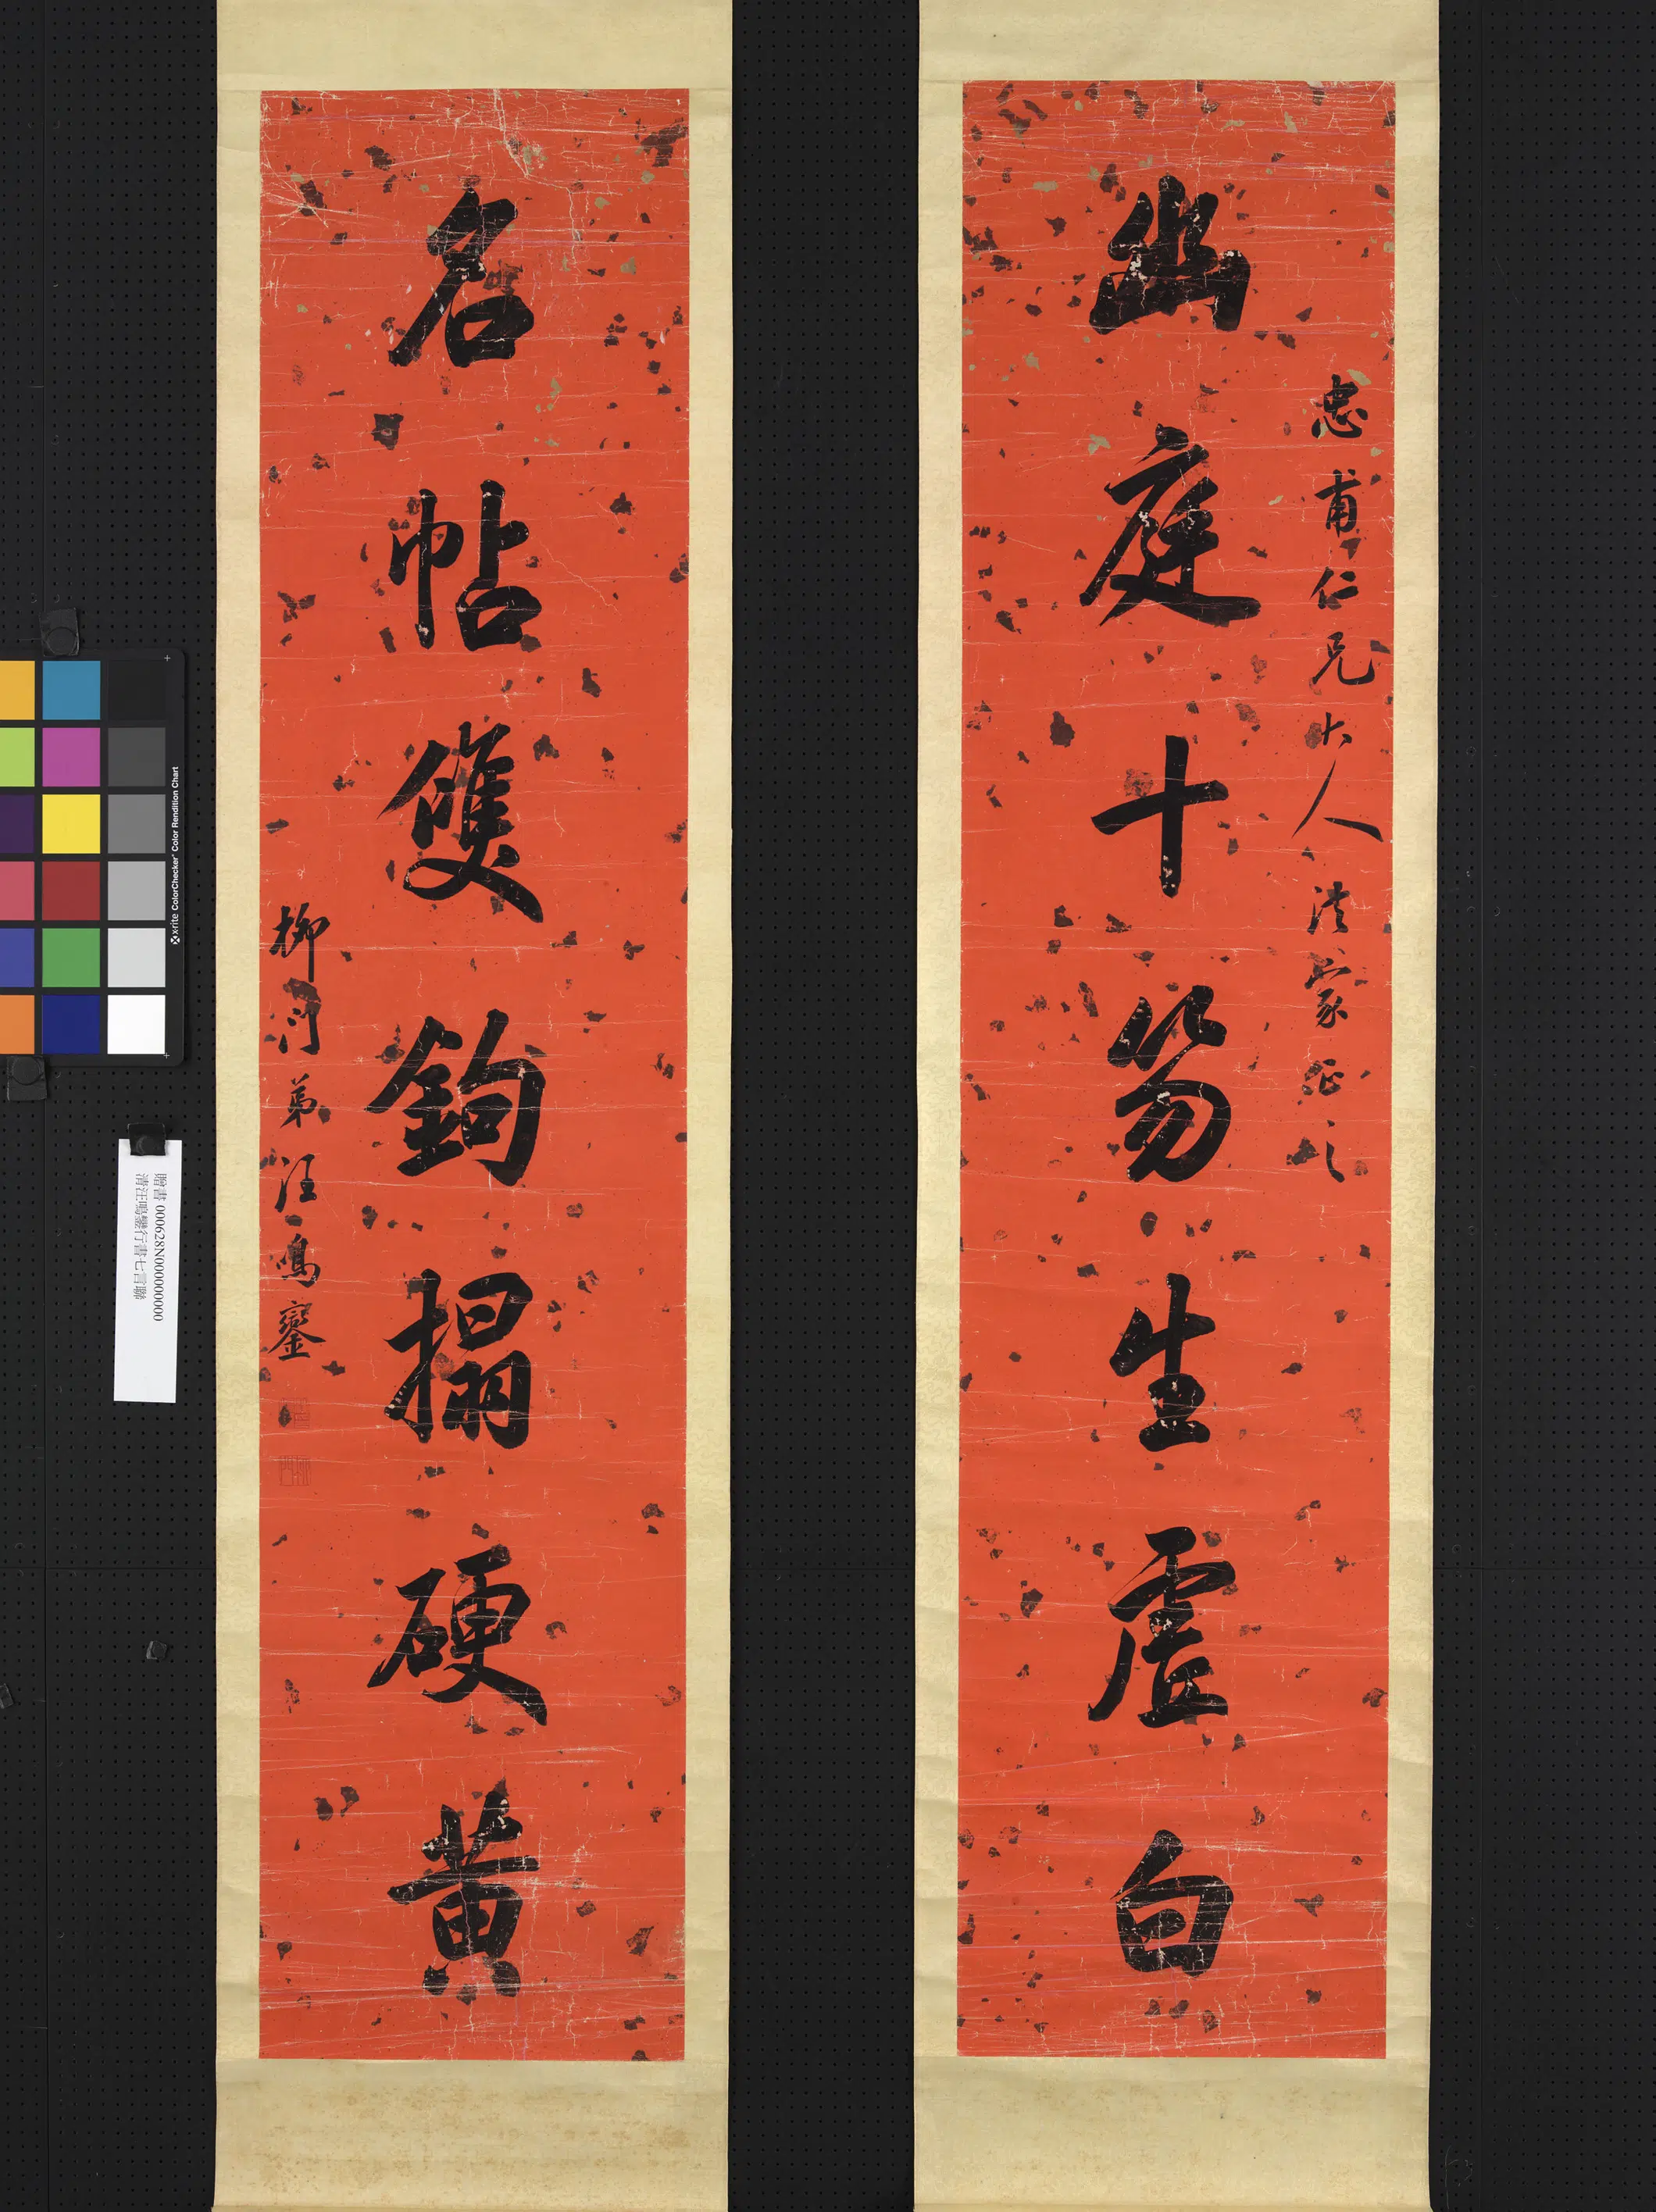 忠甫仁兄大人法家正之
幽庭十笏生虛白
名帖雙鉤搨硬黃
柳門弟汪鳴鑾
贈書 000628N000000000
清汪鳴鑾行書七言聯
x-rite ColorChecker Color Rendition Chart